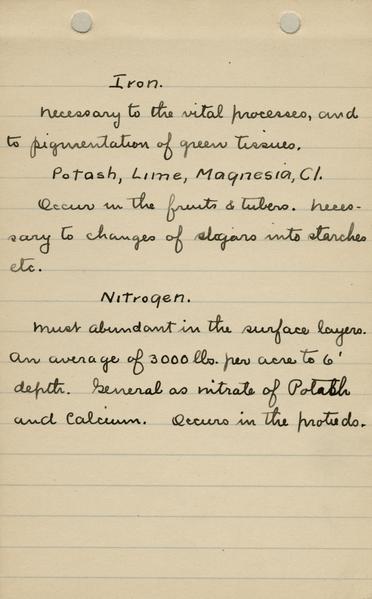 Iron.
Necessary to the vital processes, and
to pigmentation of green tissues.
Potash, Lime, Magnesia, Cl.
Occur in the fruits & tubers. Neces-
sary to changes of into starches
etc.
Nitrogen.
Must abundant in the surface layers.
An average of 3000 lbs. per acre to 6'
depth. General as nitrate of Potash
and Calcium. Occurs in the protieds.